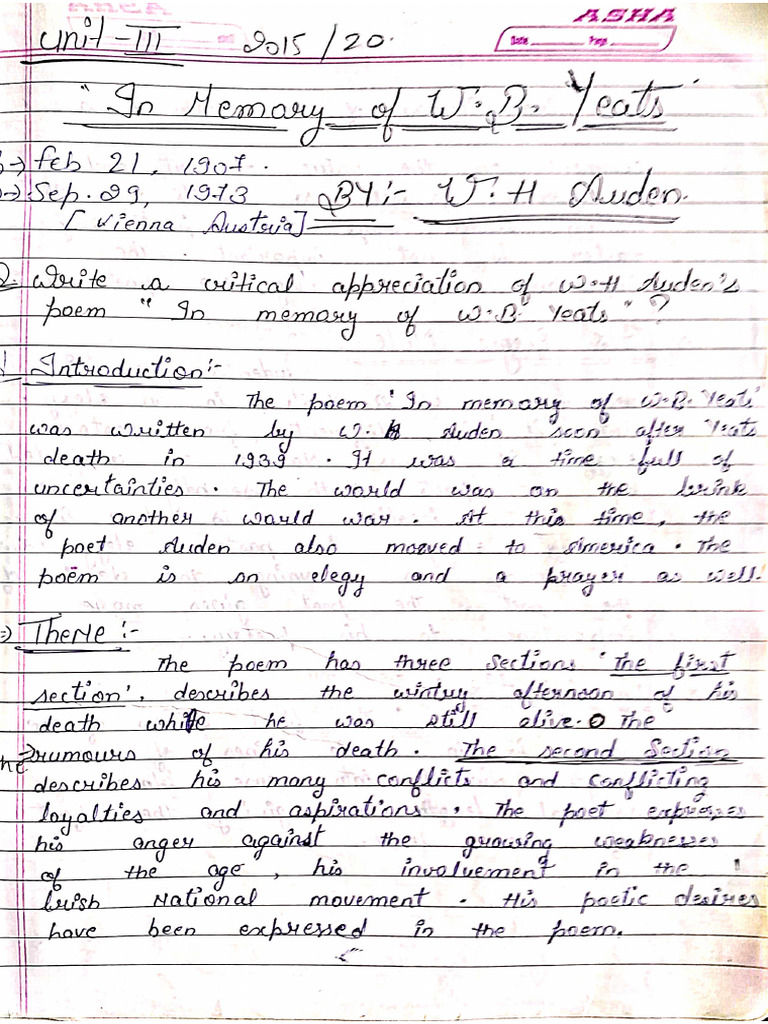 ASHA
Date Page
Unit-III 2015/20.
"In Memory of W.B. Yeats"
→ Feb 21, 1907.
→ Sep. 29, 1973 BY:- W.H Auden.
[Vienna Austria]
Q. Write a critical appreciation of W.H Auden's
poem "In memory of W.B. Yeats"?
Introduction:-
The poem 'In memory of W.B. Yeats'
was written by W.H Auden soon after Yeats
death in 1939. It was a time full of
uncertainties. The world was on the brink
of another world war. At this time, the
poet Auden also mooved to America. The
poem is an elegy and a prayer as well.
⇒ Theme:-
The poem has three sections 'The first
section', describes the wintry afternoon of his
death while he was still alive. The
rumours of his death. The second Section
describes his many conflicts and conflicting
loyalties and aspirations. The poet expresses
his anger against the growing weaknesses
of the age, his involvement in the
Irish National movement. His poetic desires
have been expressed in the poem.